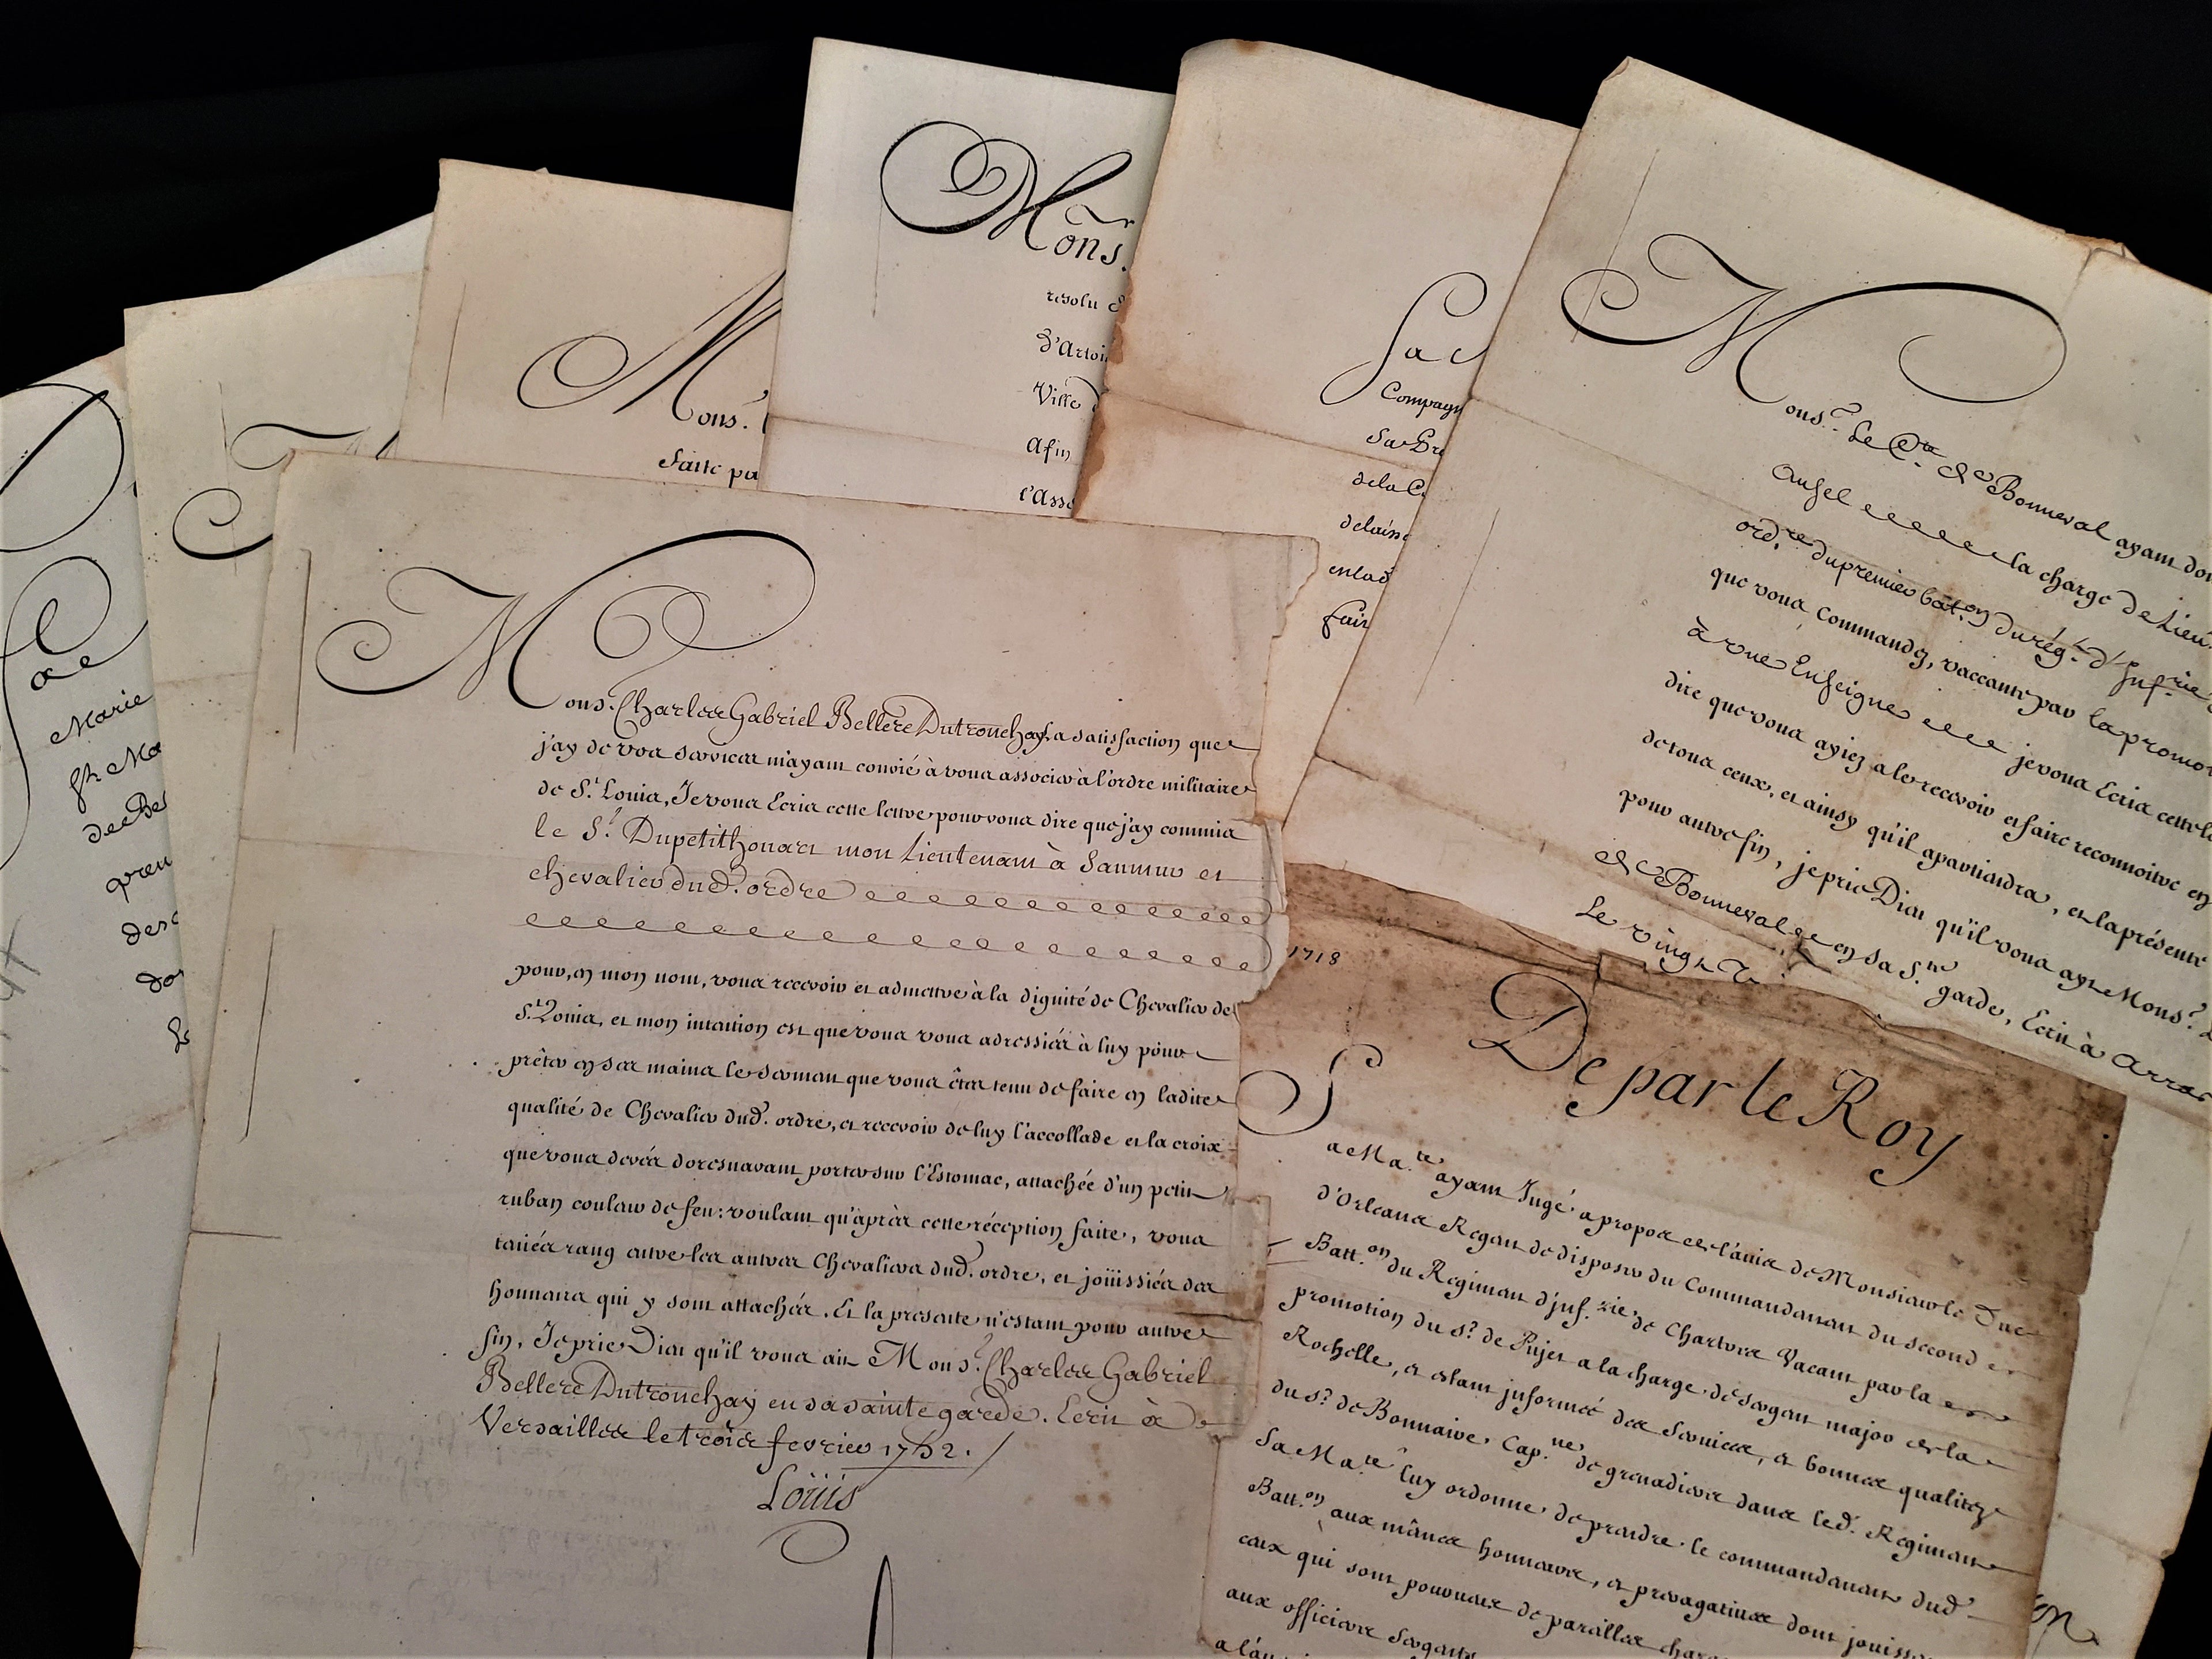 Mons.r
resolu
d'Artoi
Ville
Afin
l'Asso
Mons.
faite pa
Sa
Compagn
Sa
de la C
delaiss
en lad
fair
Marie
de Be
pren
des
do
Mons.r Le C.te De Bonneval ayant don
Ansel la charge de Lieu.
ord.re du premier bat.on du rég.t d'Inf.rie
que vous commandez, vaccante par la promo
à une Enseigne je vous Ecris cette le
dire que vous ayiez a le recevoir et faire reconnoitre en
de tous ceux, et ainsy qu'il apartiendra, et la présente
pour autre fin, je prie Dieu qu'il vous ayt Mons.r L
De Bonneval en sa S.te garde, Ecrit à Arras
Le vingt
Mons.r Charles Gabriel Bellere Dutronchay, La satisfaction que
j'ay de vos services m'ayant convié à vous associer à l'ordre militaire
de S.t Louis, Je vous Ecris cette lettre pour vous dire que j'ay commis
le S.r Dupetitthouars mon Lieutenant à Saumur et
chevalier dud. ordre
pour, en mon nom, vous recevoir et admettre à la dignité de Chevalier de
S.t Louis, et mon intention est que vous vous adressiés à luy pour
prêter en ses mains le serment que vous êtes tenu de faire en ladite
qualité de Chevalier dud. ordre, et recevoir de luy l'accollade et la croix
que vous devés doresnavant porter sur l'Estomac, attachée d'un petit
ruban couleur de feu: voulant qu'après cette réception faite, vous
teniés rang entre les autres Chevaliers dud. ordre, et joüissiés des
honneurs qui y sont attachés. Et la presente n'estant pour autre
fin, Je prie Dieu qu'il vous ait Mons.r Charles Gabriel
Bellere Dutronchay en sa sainte garde. Ecrit à
Versailles le trois fevrier 1752.
Loüis
1718
De par le Roy
Sa Ma.té ayant Jugé a propos de l'avis de Monsieur le Duc
d'Orleans Regent de disposer du Commandement du second
Batt.on du Regiment d'inf.rie de Chartres Vacant par la
promotion du s.r de Pujet a la charge de sergent major de la
Rochelle, et estant informée des services, et bonnes qualitez
du s.r de Bonnaire Cap.ne de grenadiers dans led. Regiment
Sa Ma.té luy ordonne de prendre le commandement dud.
Batt.on aux mêmes honneurs, et prerogatives dont jouiss
ceux qui sont pourveus de pareilles char
aux officiers sergents